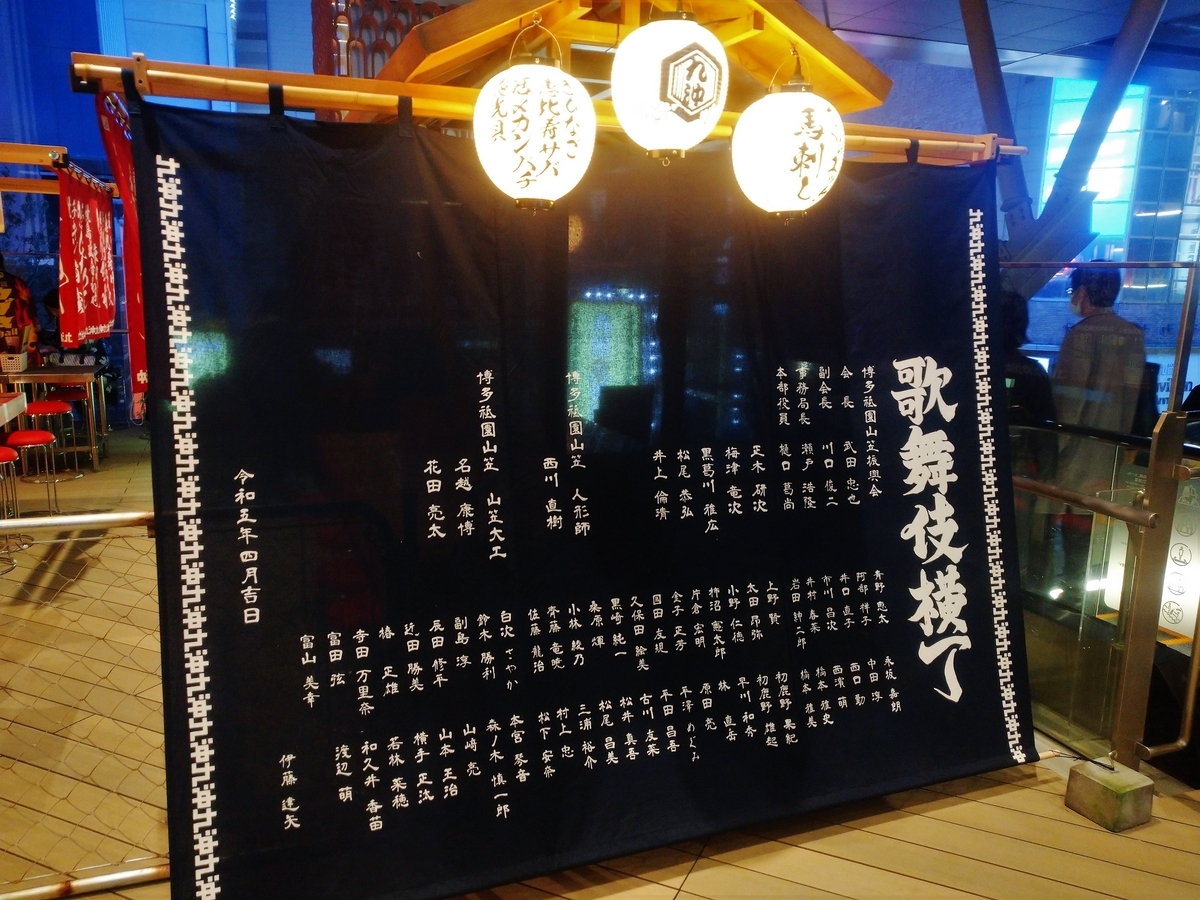 九州
馬刺し
歌舞伎横丁
博多祗園山笠振興会
会長 武田忠也
副会長 川口俊二
事務局長 瀬戸浩隆
本部役員 樋口葛尚
正木研次
梅津竜次
黒葛川雅広
松尾恭弘
井上倫清
博多祗園山笠 人形師
西川直樹
博多祗園山笠 山笠大工
名越康博
花田亮太
青野恵太
阿部祥子
井口直子
市川昌次
井村春菜
岩田紳一郎
上野賢
太田昂弥
小野仁徳
柿沼憲太郎
片倉宏明
金子正芳
国田友規
久保田絵美
黒崎純一
桑原輝
小林綾乃
斉藤竜暁
佐藤龍治
白次さやか
鈴木勝利
副島淳
辰田修平
近田勝美
椿正雄
寺田万里奈
富田弦
富山美幸
永坂嘉朗
中田淳
西口勤
西濱萌
橋本雅史
橋本雅美
初鹿野果紀
初鹿野雄起
早川和秀
林直岳
原田亮
平澤めぐみ
平田昌吾
古川友菜
松井真吾
松尾昌美
三浦裕介
村上忠
松下安奈
本宮琴音
森ノ木慎一郎
山崎亮
山本王治
横手正汰
若林菜穂
和久井香苗
渡辺萌
伊藤達矢
令和五年四月吉日